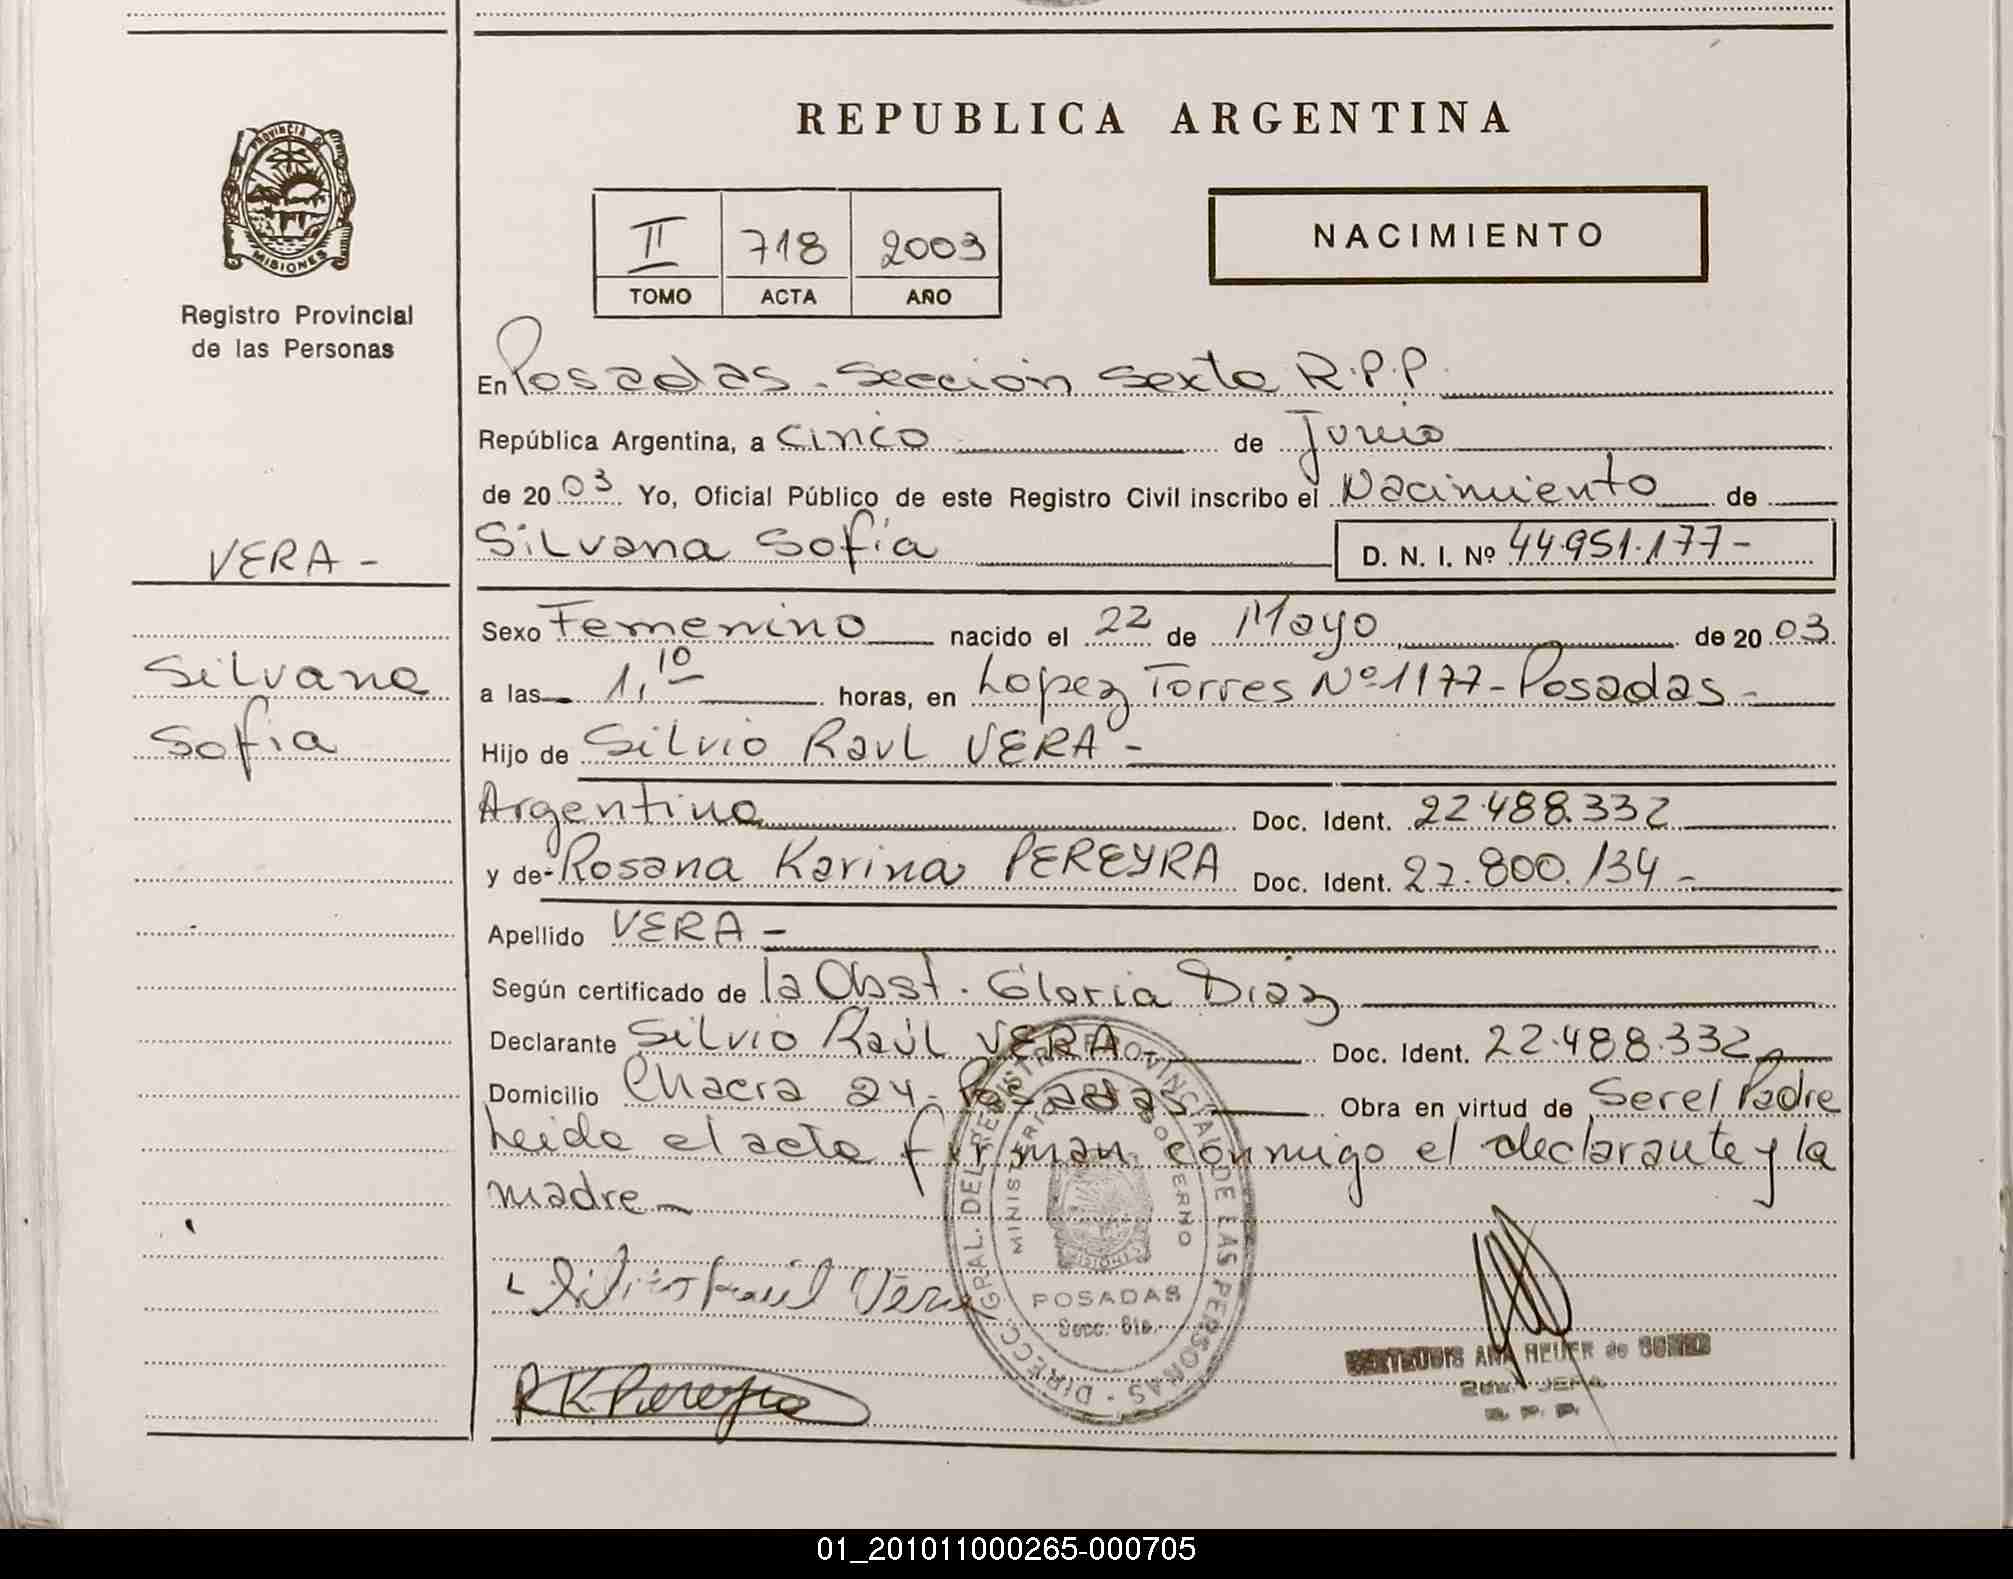 REPUBLICA ARGENTINA
PROVINCIA DE
MISIONES
Registro Provincial
de las Personas
II 718 2003
TOMO ACTA AÑO
NACIMIENTO
En Posadas - Sección Sexta R.P.P.
República Argentina, a Cinco de Junio
de 20 03 Yo, Oficial Público de este Registro Civil inscribo el Nacimiento de
Silvana Sofía D. N. I. Nº 44.951.177-
VERA -
Silvana
Sofía
Sexo Femenino nacido el 22 de Mayo de 20 03
a las 1,10 horas, en Lopez Torres Nº 1177 - Posadas -
Hijo de Silvio Raul VERA -
Argentino Doc. Ident. 22.488.332
y de Rosana Karina PEREYRA Doc. Ident. 27.800.134 -
Apellido VERA -
Según certificado de la Obst. Gloria Diaz
Declarante Silvio Raúl VERA - Doc. Ident. 22.488.332
Domicilio Chacra 24 - Posadas Obra en virtud de Ser el Padre
Leida el acta firman conmigo el declarante y la
madre -
Silvio Raúl Vera
R K Pereyra
DIRECC. GRAL. DEL REGISTRO PROVINCIAL DE LAS PERSONAS
MINISTERIO GOBIERNO
MISIONES
POSADAS
Secc. 6ta.
ANA HEUER de
JEFA
R. P. P.
01_201011000265-000705